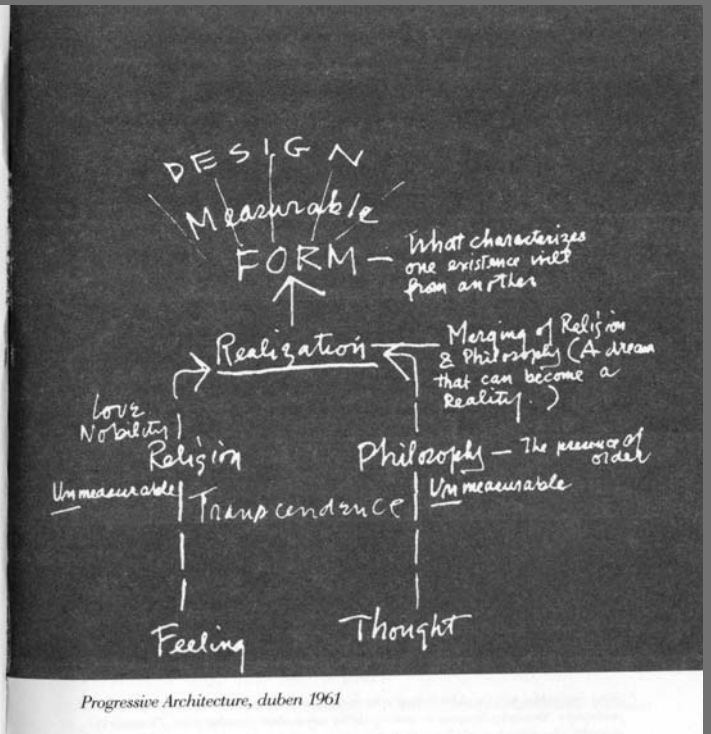 DESIGN
Measurable
FORM — What characterizes
one existence will
from another
Realization — Merging of Religion
& Philosophy (A dream
that can become a
Reality.)
Love
Nobility
Religion
Philosophy — The presence of
order
Unmeasurable
Transcendence
Unmeasurable
Feeling
Thought
Progressive Architecture, duben 1961